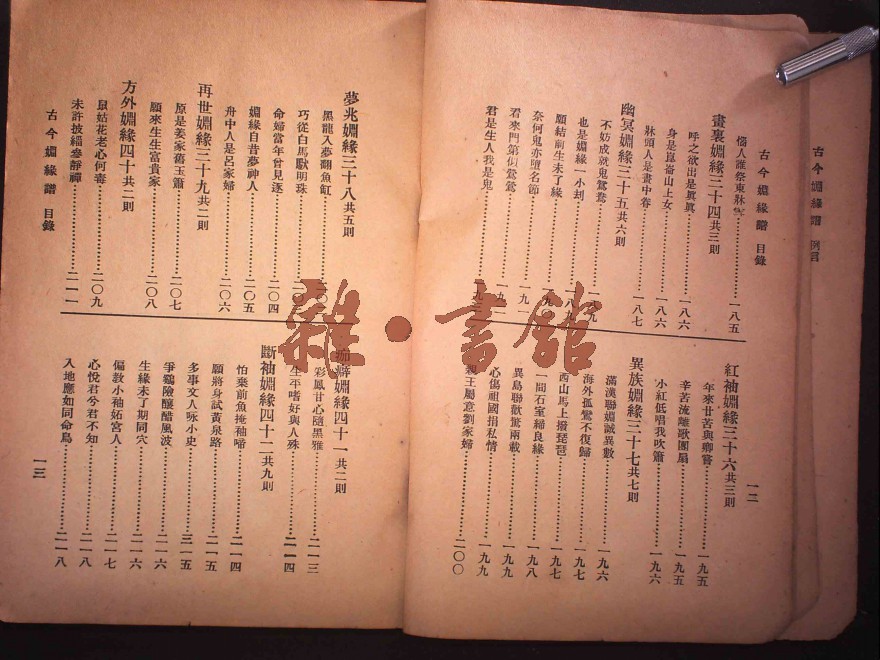 古今婣緣譜 例言
古今婣緣譜 目錄
惱人誰祭東牀　一八五
畫裏婣緣三十四共三則
呼之欲出是眞眞　一八六
身是崑崙山上女　一八六
牀頭人是畫中眷　一八七
幽冥婣緣三十五共六則
不妨成就鬼鴛鴦
也是婣緣一小刦　一八九
願結前生未了緣
奈何鬼亦墮名節　一九一
看來門第似鴛鴦
君是生人我是鬼
紅袖婣緣三十六共三則
年來甘苦與卿嘗　一九五
辛苦流離歌團扇　一九五
小紅低唱我吹簫　一九六
異族婣緣三十七共七則
滿漢聯婣誠異數　一九六
海外孤鸞不復歸　一九七
西山馬上撥琵琶　一九七
一間石室締良緣　一九八
異島聯歡驚兩載　一九九
心傷祖國捐私情　一九九
親王屬意劉家婦　二〇〇
一二
夢兆婣緣三十八共五則
黑龍入夢翻魚缸
巧從白馬馱明珠
命婦當年曾見逐　二〇四
婣緣自昔夢神人　二〇五
舟中人是呂家婦　二〇六
再世婣緣三十九共二則
原是姜家舊玉簫　二〇七
願來生生富貴家　二〇八
方外婣緣四十共二則
鼠姑花老心何毒　二〇九
未許披緇參靜禪　二一一
古今婣緣譜 目錄
癖婣緣四十一共二則
彩鳳甘心隨黑雅　二一三
生平嗜好與人殊　二一四
斷袖婣緣四十二共九則
怕棄前魚掩袖啼　二一四
願將身試黃泉路　二一五
多事文人咏小史　三一五
爭鷄險釀醋風波　二一六
生緣未了期同穴　二一六
偏教小袖妬宮人　二一七
心悅君兮君不知　二一八
入地應如同命鳥　二一八
一三
雜·書館